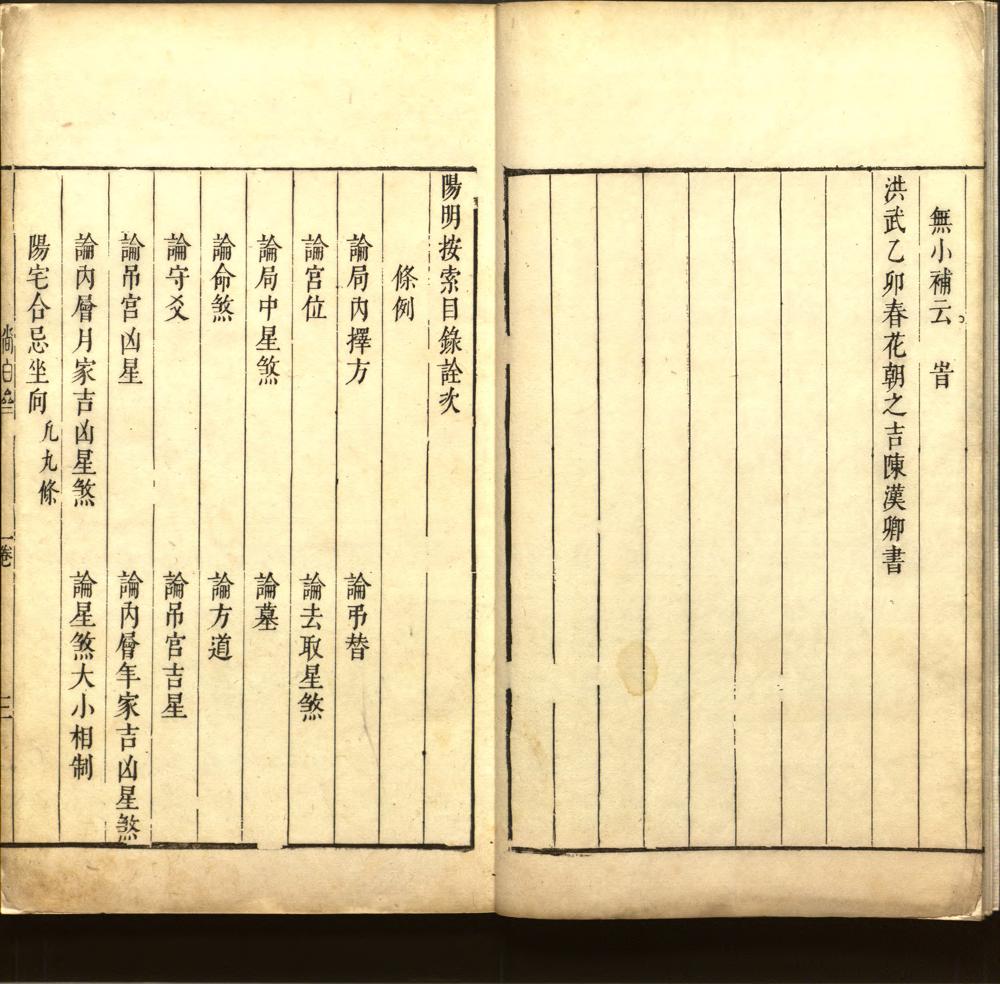 無小補云 旹
洪武乙卯春花朝之吉陳漢卿書
陽明按索目錄詮次
條例
論局內擇方 論弔替
論宮位 論去取星煞
論局中星煞 論墓
論命煞 論方道
論守爻 論吊宮吉星
論吊宮凶星 論內層年家吉凶星煞
論內層月家吉凶星煞 論星煞大小相制
陽宅合忌坐向 凡九條
卷 三